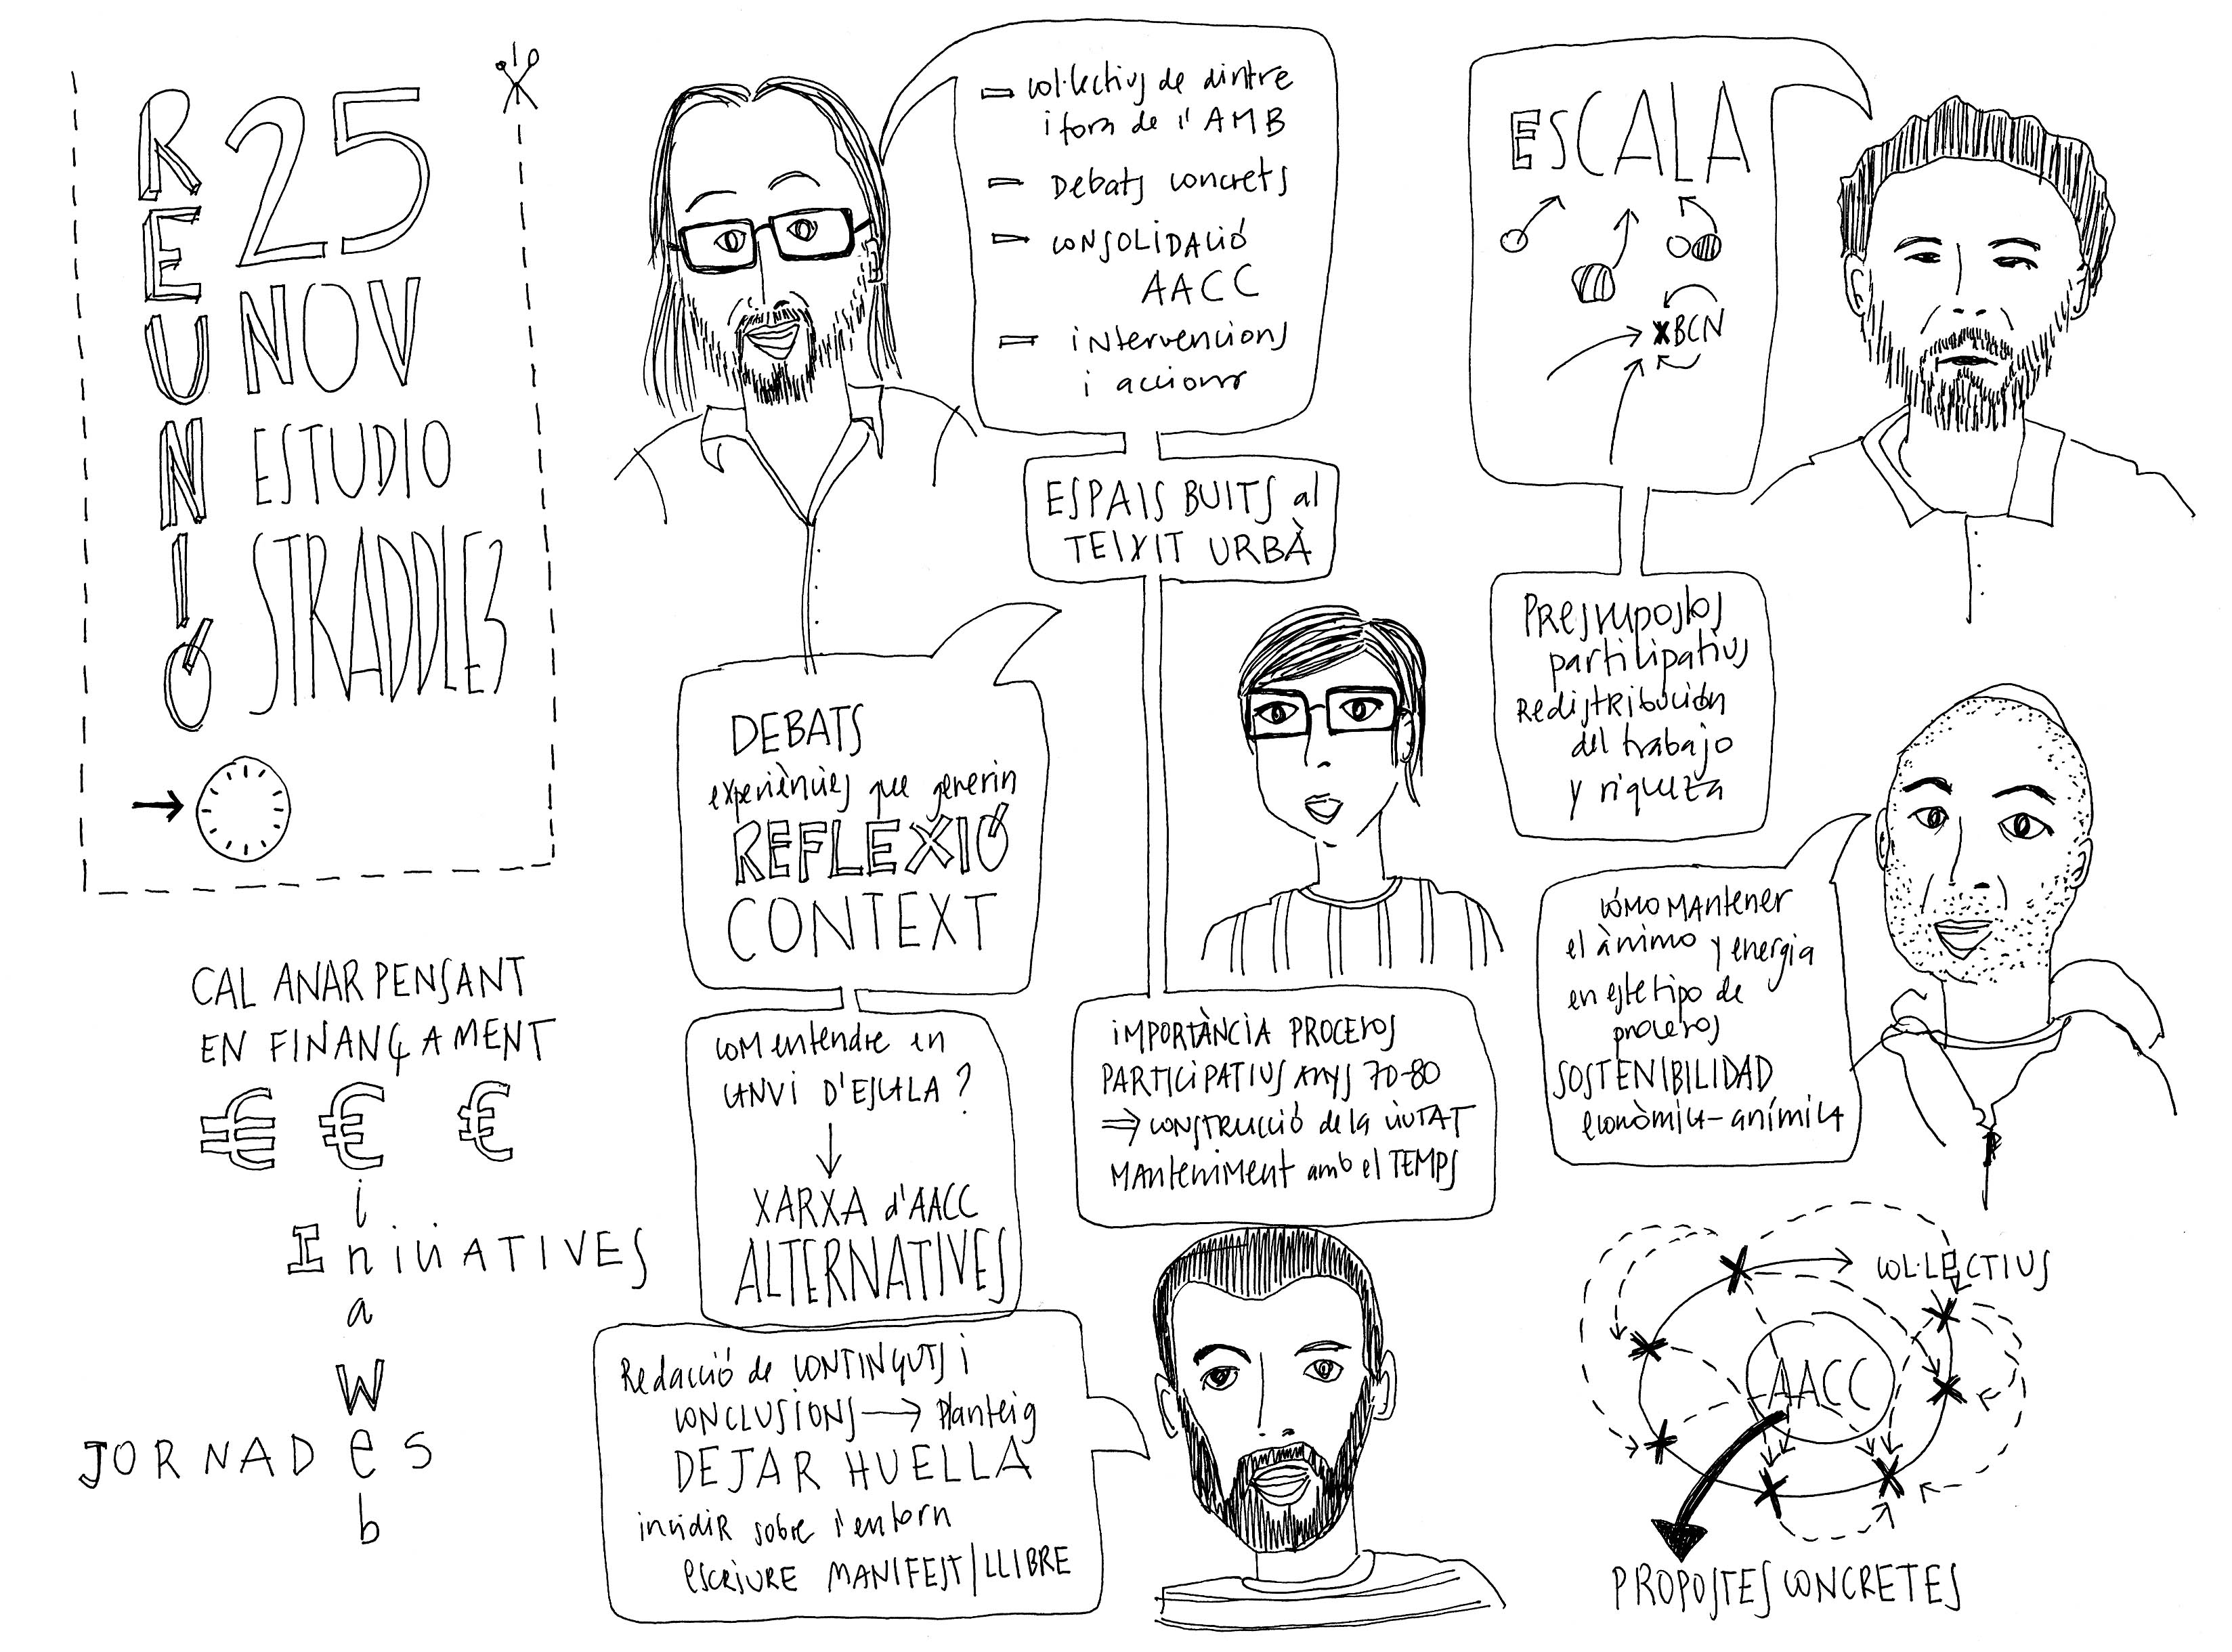 REUNIÓ
25
NOV
ESTUDIO
STRADDLE3
CAL ANAR PENSANT
EN FINANÇAMENT
€ € €
INICIATIVES
inaweb
JORNADES
- col·lectius de dintre
i fora de l'AMB
- Debats concrets
- CONSOLIDACIÓ
AACC
- intervencions
i accions
ESPAIS BUITS al
TEIXIT URBÀ
DEBATS
experiències que generin
REFLEXIÓ
CONTEXT
com entendre en
CANVI D'ESCALA?
XARXA d'AACC
ALTERNATIVES
Redacció de CONTINGUTS i
CONCLUSIONS → Planteig
DEJAR HUELLA
incidir sobre l'entorn
escriure MANIFEST/LLIBRE
IMPORTÀNCIA PROCESOS
PARTICIPATIUS anys 70-80
⇒ CONSTRUCCIÓ de la CIUTAT
Manteniment amb el TEMPS
ESCALA
xBCN
Presupostos
participatius
Redistribución
del trabajo
y riqueza
cómo mantener
el ànimo y energia
en este tipo de
procesos
SOSTENIBILIDAD
econòmica-anímica
COL·LECTIUS
AACC
PROPOSTES CONCRETES